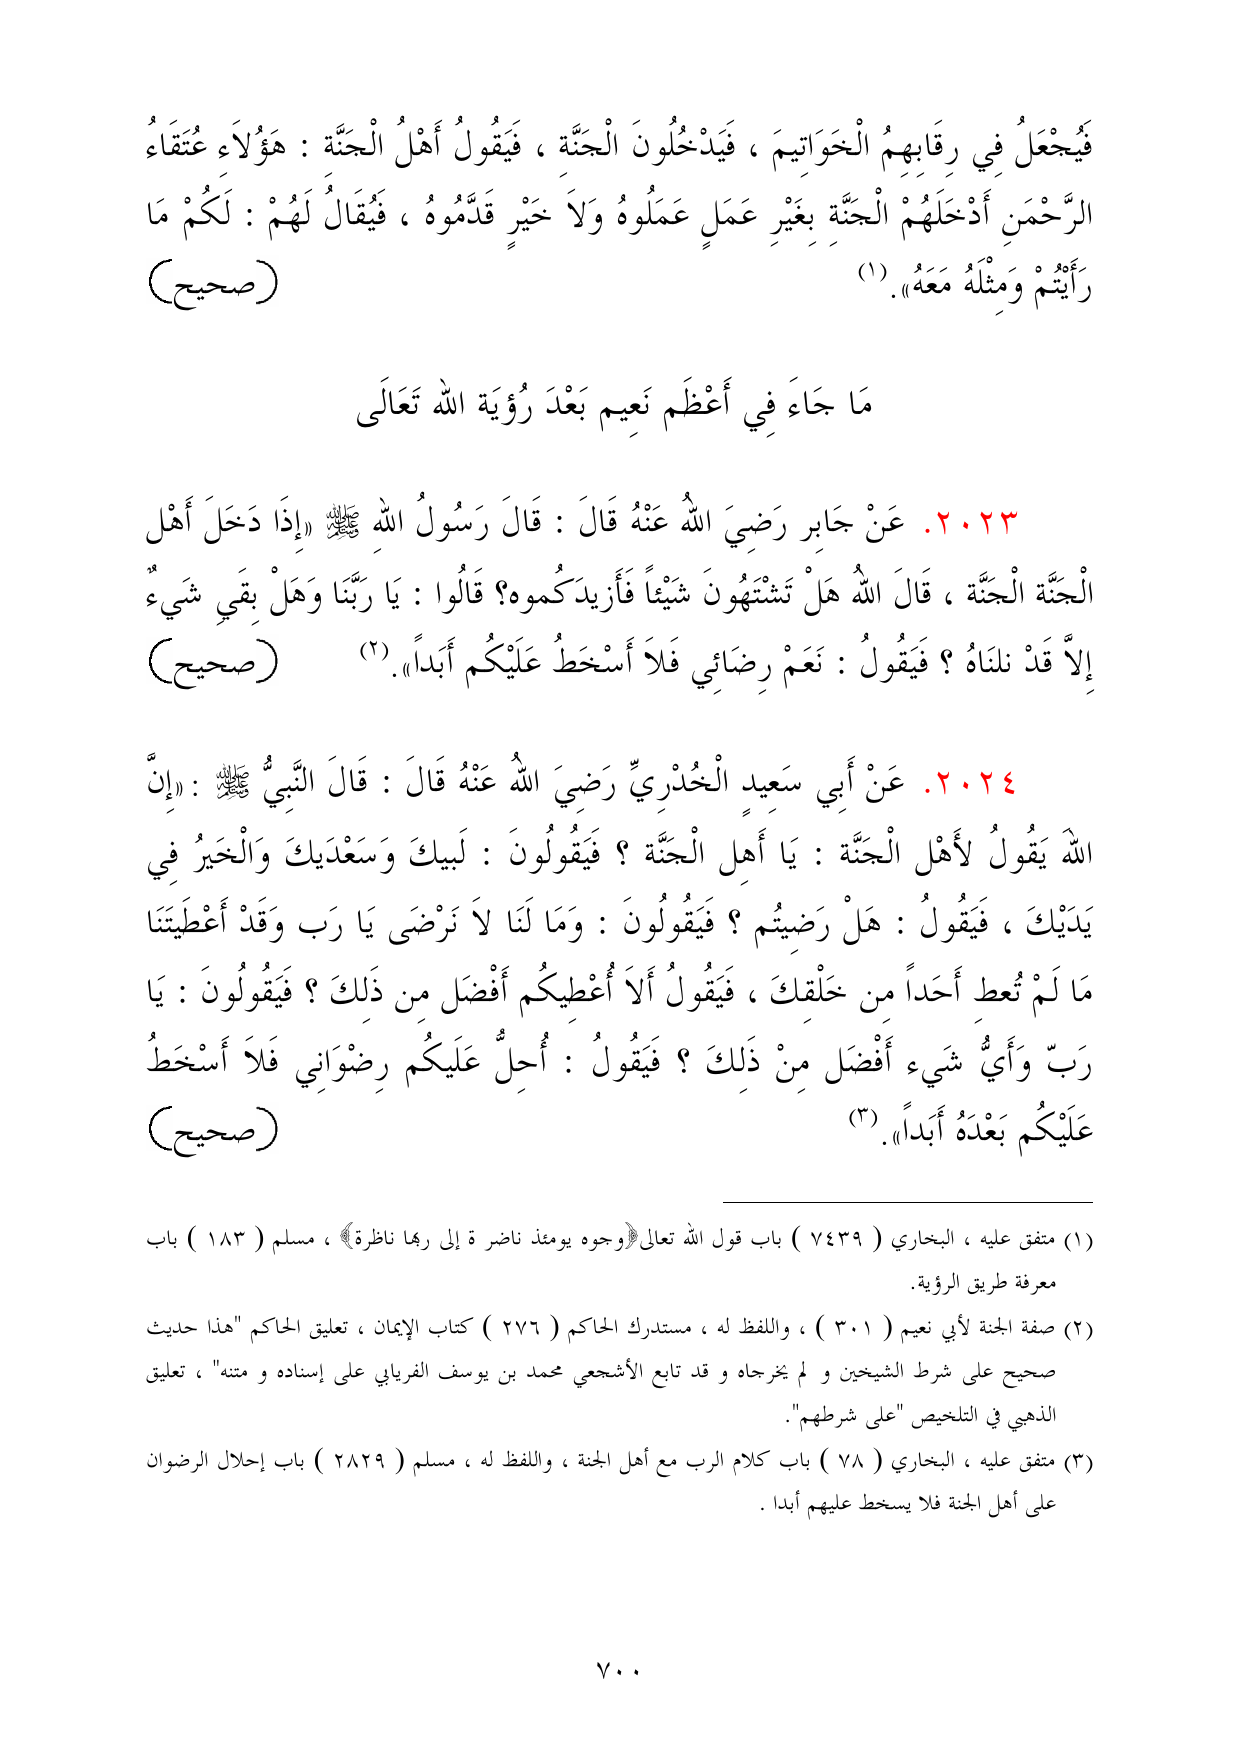 فَيُجْعَلُ فِي رِقَابِهِمُ الْخَوَاتِيمَ ، فَيَدْخُلُونَ الْجَنَّةِ ، فَيَقُولُ أَهْلُ الْجَنَّةِ : هَؤُلاَءِ عُتَقَاءُ
الرَّحْمَنِ أَدْخَلَهُمْ الْجَنَّةِ بِغَيْرِ عَمَلٍ عَمَلُوهُ وَلاَ خَيْرٍ قَدَّمُوهُ ، فَيُقَالُ لَهُمْ : لَكُمْ مَا
رَأَيْتُمْ وَمِثْلَهُ مَعَهُ». (١) (صحيح)
مَا جَاءَ فِي أَعْظَم نَعِيم بَعْدَ رُؤيَة الله تَعَالَى
٢٠٢٣. عَنْ جَابِر رَضِيَ اللهُ عَنْهُ قَالَ : قَالَ رَسُولُ اللهِ ﷺ «إِذَا دَخَلَ أَهْل
الْجَنَّة الْجَنَّة ، قَالَ اللهُ هَلْ تَشْتَهُونَ شَيْئاً فَأَزيدَكُموه؟ قَالُوا : يَا رَبَّنَا وَهَلْ بِقَي شَيءٌ
إِلاَّ قَدْ نلنَاهُ ؟ فَيَقُولُ : نَعَمْ رِضَائِي فَلاَ أَسْخَطُ عَلَيْكُم أَبَداً». (٢) (صحيح)
٢٠٢٤. عَنْ أَبِي سَعِيدٍ الْخُدْرِيِّ رَضِيَ اللهُ عَنْهُ قَالَ : قَالَ النَّبِيُّ ﷺ : «إِنَّ
اللهَ يَقُولُ لأَهْل الْجَنَّة : يَا أَهِل الْجَنَّة ؟ فَيَقُولُونَ : لَبيكَ وَسَعْدَيكَ وَالْخَيرُ فِي
يَدَيْكَ ، فَيَقُولُ : هَلْ رَضِيتُم ؟ فَيَقُولُونَ : وَمَا لَنَا لاَ نَرْضَى يَا رَب وَقَدْ أَعْطَيتَنَا
مَا لَمْ تُعطِ أَحَداً مِن خَلْقِكَ ، فَيَقُولُ أَلاَ أُعْطِيكُم أَفْضَل مِن ذَلِكَ ؟ فَيَقُولُونَ : يَا
رَبّ وَأَيُّ شَيء أَفْضَل مِنْ ذَلِكَ ؟ فَيَقُولُ : أُحِلُّ عَلَيكُم رِضْوَانِي فَلاَ أَسْخَطُ
عَلَيْكُم بَعْدَهُ أَبَداً». (٣) (صحيح)
(١) متفق عليه ، البخاري ( ٧٤٣٩ ) باب قول الله تعالى﴿وجوه يومئذ ناضر ة إلى ربها ناظرة﴾ ، مسلم ( ١٨٣ ) باب
معرفة طريق الرؤية.
(٢) صفة الجنة لأبي نعيم ( ٣٠١ ) ، واللفظ له ، مستدرك الحاكم ( ٢٧٦ ) كتاب الإيمان ، تعليق الحاكم "هذا حديث
صحيح على شرط الشيخين و لم يخرجاه و قد تابع الأشجعي محمد بن يوسف الفريابي على إسناده و متنه" ، تعليق
الذهبي في التلخيص "على شرطهم".
(٣) متفق عليه ، البخاري ( ٧٨ ) باب كلام الرب مع أهل الجنة ، واللفظ له ، مسلم ( ٢٨٢٩ ) باب إحلال الرضوان
على أهل الجنة فلا يسخط عليهم أبدا .
٧٠٠